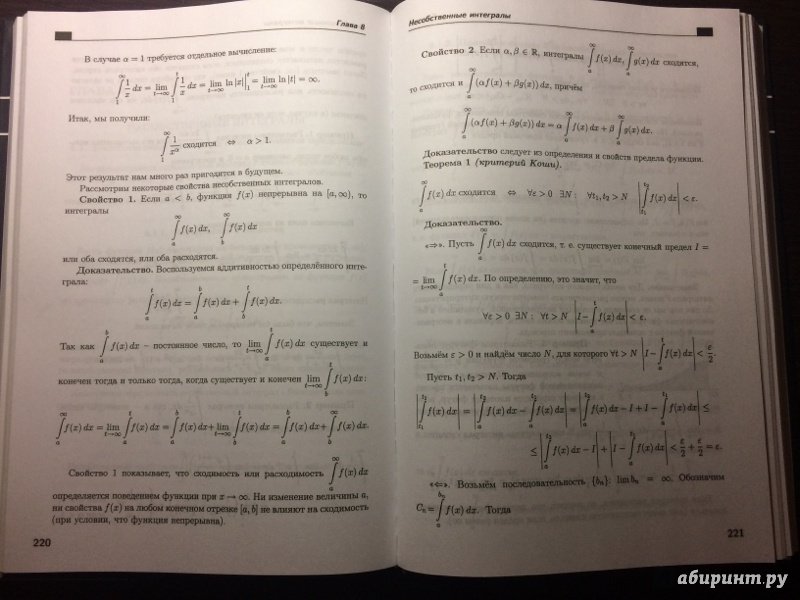 Глава 8
В случае α = 1 требуется отдельное вычисление:
∫₁^∞ 1/x dx = lim_{t→∞} ∫₁^t 1/x dx = lim_{t→∞} ln|x| |₁^t = lim_{t→∞} ln|t| = ∞.
Итак, мы получили:
∫₁^∞ 1/x^α сходится ⇔ α > 1.
Этот результат нам много раз пригодится в будущем.
Рассмотрим некоторые свойства несобственных интегралов.
Свойство 1. Если a < b, функция f(x) непрерывна на [a, ∞), то
интегралы
∫ₐ^∞ f(x) dx, ∫_b^∞ f(x) dx
или оба сходятся, или оба расходятся.
Доказательство. Воспользуемся аддитивностью определённого инте-
грала:
∫ₐ^t f(x) dx = ∫ₐ^b f(x) dx + ∫_b^t f(x) dx.
Так как ∫ₐ^b f(x) dx – постоянное число, то lim_{t→∞} ∫ₐ^t f(x) dx существует и
конечен тогда и только тогда, когда существует и конечен lim_{t→∞} ∫_b^t f(x) dx:
∫ₐ^∞ f(x) dx = lim_{t→∞} ∫ₐ^t f(x) dx = ∫ₐ^b f(x) dx + lim_{t→∞} ∫_b^t f(x) dx = ∫ₐ^b f(x) dx + ∫_b^∞ f(x) dx.
Свойство 1 показывает, что сходимость или расходимость ∫ₐ^∞ f(x) dx
определяется поведением функции при x → ∞. Ни изменение величины a,
ни свойства f(x) на любом конечном отрезке [a, b] не влияют на сходимость
(при условии, что функция непрерывна).
220
Несобственные интегралы
Свойство 2. Если α, β ∈ ℝ, интегралы ∫ₐ^∞ f(x) dx, ∫ₐ^∞ g(x) dx сходятся,
то сходится и ∫ₐ^∞ (αf(x) + βg(x)) dx, причём
∫ₐ^∞ (αf(x) + βg(x)) dx = α ∫ₐ^∞ f(x) dx + β ∫ₐ^∞ g(x) dx.
Доказательство следует из определения и свойств предела функции.
Теорема 1 (критерий Коши).
∫ₐ^∞ f(x) dx сходится ⇔ ∀ε > 0 ∃N : ∀t₁, t₂ > N |∫_{t₁}^{t₂} f(x) dx| < ε.
Доказательство.
«⇒». Пусть ∫ₐ^∞ f(x) dx сходится, т. е. существует конечный предел I =
= lim_{t→∞} ∫ₐ^t f(x) dx. По определению, это значит, что
∀ε > 0 ∃N : ∀t > N |I − ∫ₐ^t f(x) dx| < ε.
Возьмём ε > 0 и найдём число N, для которого ∀t > N |I − ∫ₐ^t f(x) dx| < ε/2.
Пусть t₁, t₂ > N. Тогда
|∫_{t₁}^{t₂} f(x) dx| = |∫ₐ^{t₂} f(x) dx − ∫ₐ^{t₁} f(x) dx| = |∫ₐ^{t₂} f(x) dx − I + I − ∫ₐ^{t₁} f(x) dx| ≤
≤ |∫ₐ^{t₂} f(x) dx − I| + |I − ∫ₐ^{t₁} f(x) dx| < ε/2 + ε/2 = ε.
«⇐». Возьмём последовательность {bₙ}: lim bₙ = ∞. Обозначим
Cₙ = ∫ₐ^{bₙ} f(x) dx. Тогда
221
абиринт.ру